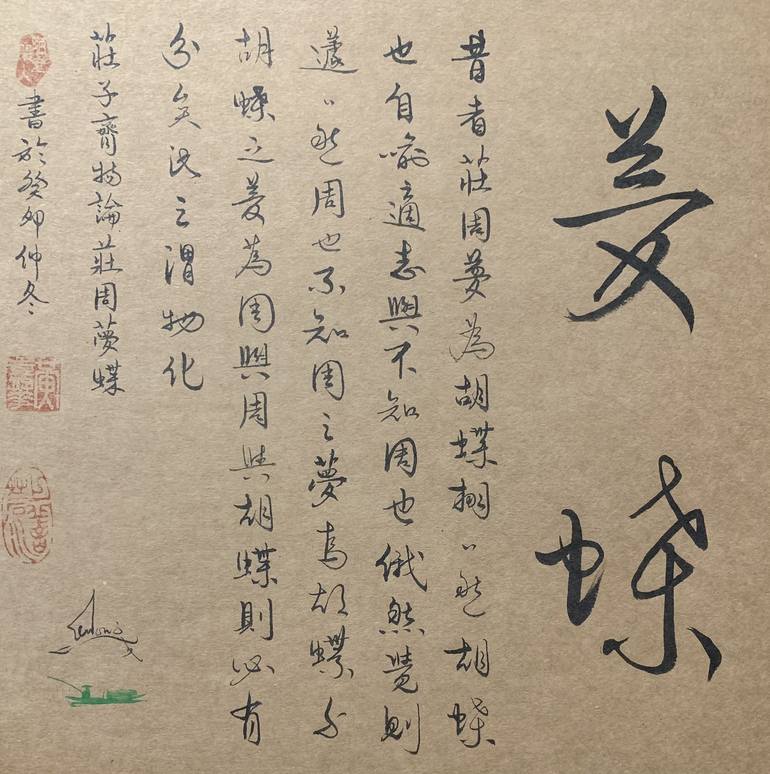 夢蝶
昔者莊周夢為胡蝶栩〻然胡蝶
也自喻適志與不知周也俄然覺則
蘧〻然周也不知周之夢為胡蝶與
胡蝶之夢為周與周與胡蝶則必有
分矣此之謂物化
莊子齊物論莊周夢蝶
書於癸卯仲冬